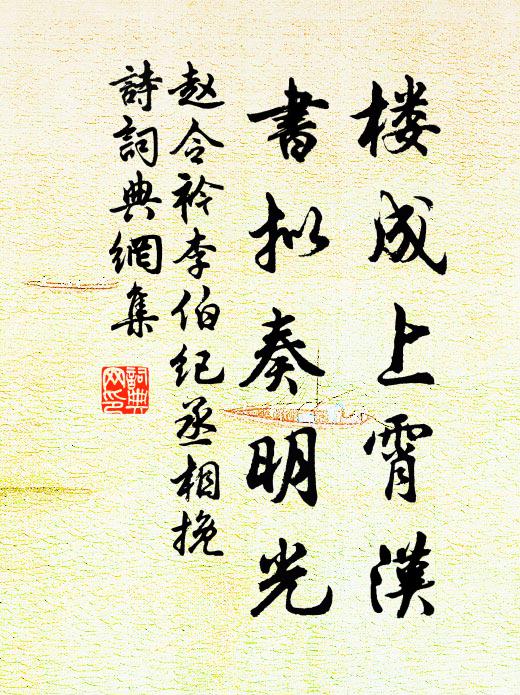 楼成上霄漢
書拟奏明光
赵令衿李伯纪丞相挽
詩詞典網集
詞典网印